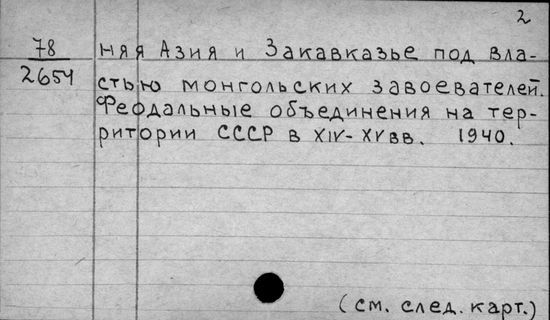 2
78
2654
няя Азия и Закавказье под вла-
стью монгольских завоевателей.
Феодальные объединения на тер-
ритории СССР в XIV-XV вв. 1940.
(см. след. карт.)